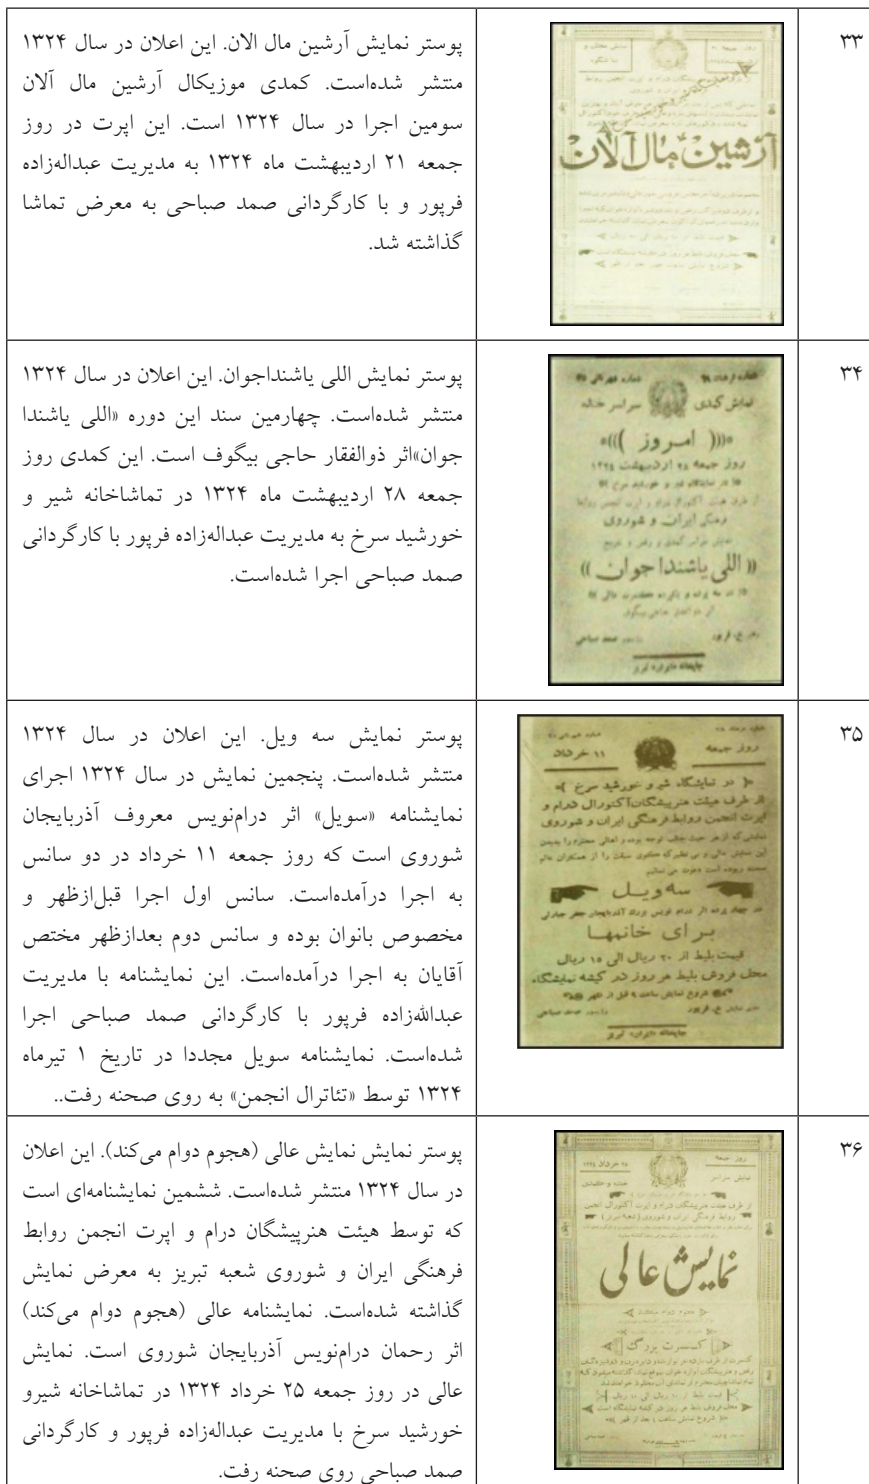 ۳۳
آرشین مال آلان
پوستر نمایش آرشین مال الان. این اعلان در سال ۱۳۲۴
منتشر شده‌است. کمدی موزیکال آرشین مال آلان
سومین اجرا در سال ۱۳۲۴ است. این اپرت در روز
جمعه ۲۱ اردیبهشت ماه ۱۳۲۴ به مدیریت عبداله‌زاده
فرپور و با کارگردانی صمد صباحی به معرض تماشا
گذاشته شد.
۳۴
نمایش کمدی سراسر خنده
امروز
روز جمعه ۲۸ اردیبهشت ۱۳۲۴
فرهنگی ایران و شوروی
(( اللی یاشندا جوان ))
پوستر نمایش اللی یاشنداجوان. این اعلان در سال ۱۳۲۴
منتشر شده‌است. چهارمین سند این دوره «اللی یاشندا
جوان»اثر ذوالفقار حاجی بیگوف است. این کمدی روز
جمعه ۲۸ اردیبهشت ماه ۱۳۲۴ در تماشاخانه شیر و
خورشید سرخ به مدیریت عبداله‌زاده فرپور با کارگردانی
صمد صباحی اجرا شده‌است.
۳۵
روز جمعه ۱۱ خرداد
در نمایشگاه شیر و خورشید سرخ
از طرف هیئت هنرپیشگان آکتورال درام و
اپرت انجمن روابط فرهنگی ایران و شوروی
سه ویل
برای خانمها
قیمت بلیط از ۳۰ ریال الی ۱۵ ریال
محل فروش بلیط هر روز در گیشه نمایشگاه
پوستر نمایش سه ویل. این اعلان در سال ۱۳۲۴
منتشر شده‌است. پنجمین نمایش در سال ۱۳۲۴ اجرای
نمایشنامه «سویل» اثر درام‌نویس معروف آذربایجان
شوروی است که روز جمعه ۱۱ خرداد در دو سانس
به اجرا درآمده‌است. سانس اول اجرا قبل‌ازظهر و
مخصوص بانوان بوده و سانس دوم بعدازظهر مختص
آقایان به اجرا درآمده‌است. این نمایشنامه با مدیریت
عبدالله‌زاده فرپور با کارگردانی صمد صباحی اجرا
شده‌است. نمایشنامه سویل مجددا در تاریخ ۱ تیرماه
۱۳۲۴ توسط «تئاترال انجمن» به روی صحنه رفت..
۳۶
روز جمعه ۲۵ خرداد ۱۳۲۴
نمایش عالی
کنسرت بزرگ
پوستر نمایش نمایش عالی (هجوم دوام می‌کند). این اعلان
در سال ۱۳۲۴ منتشر شده‌است. ششمین نمایشنامه‌ای است
که توسط هیئت هنرپیشگان درام و اپرت انجمن روابط
فرهنگی ایران و شوروی شعبه تبریز به معرض نمایش
گذاشته شده‌است. نمایشنامه عالی (هجوم دوام می‌کند)
اثر رحمان درام‌نویس آذربایجان شوروی است. نمایش
عالی در روز جمعه ۲۵ خرداد ۱۳۲۴ در تماشاخانه شیرو
خورشید سرخ با مدیریت عبداله‌زاده فرپور و کارگردانی
صمد صباحی روی صحنه رفت.